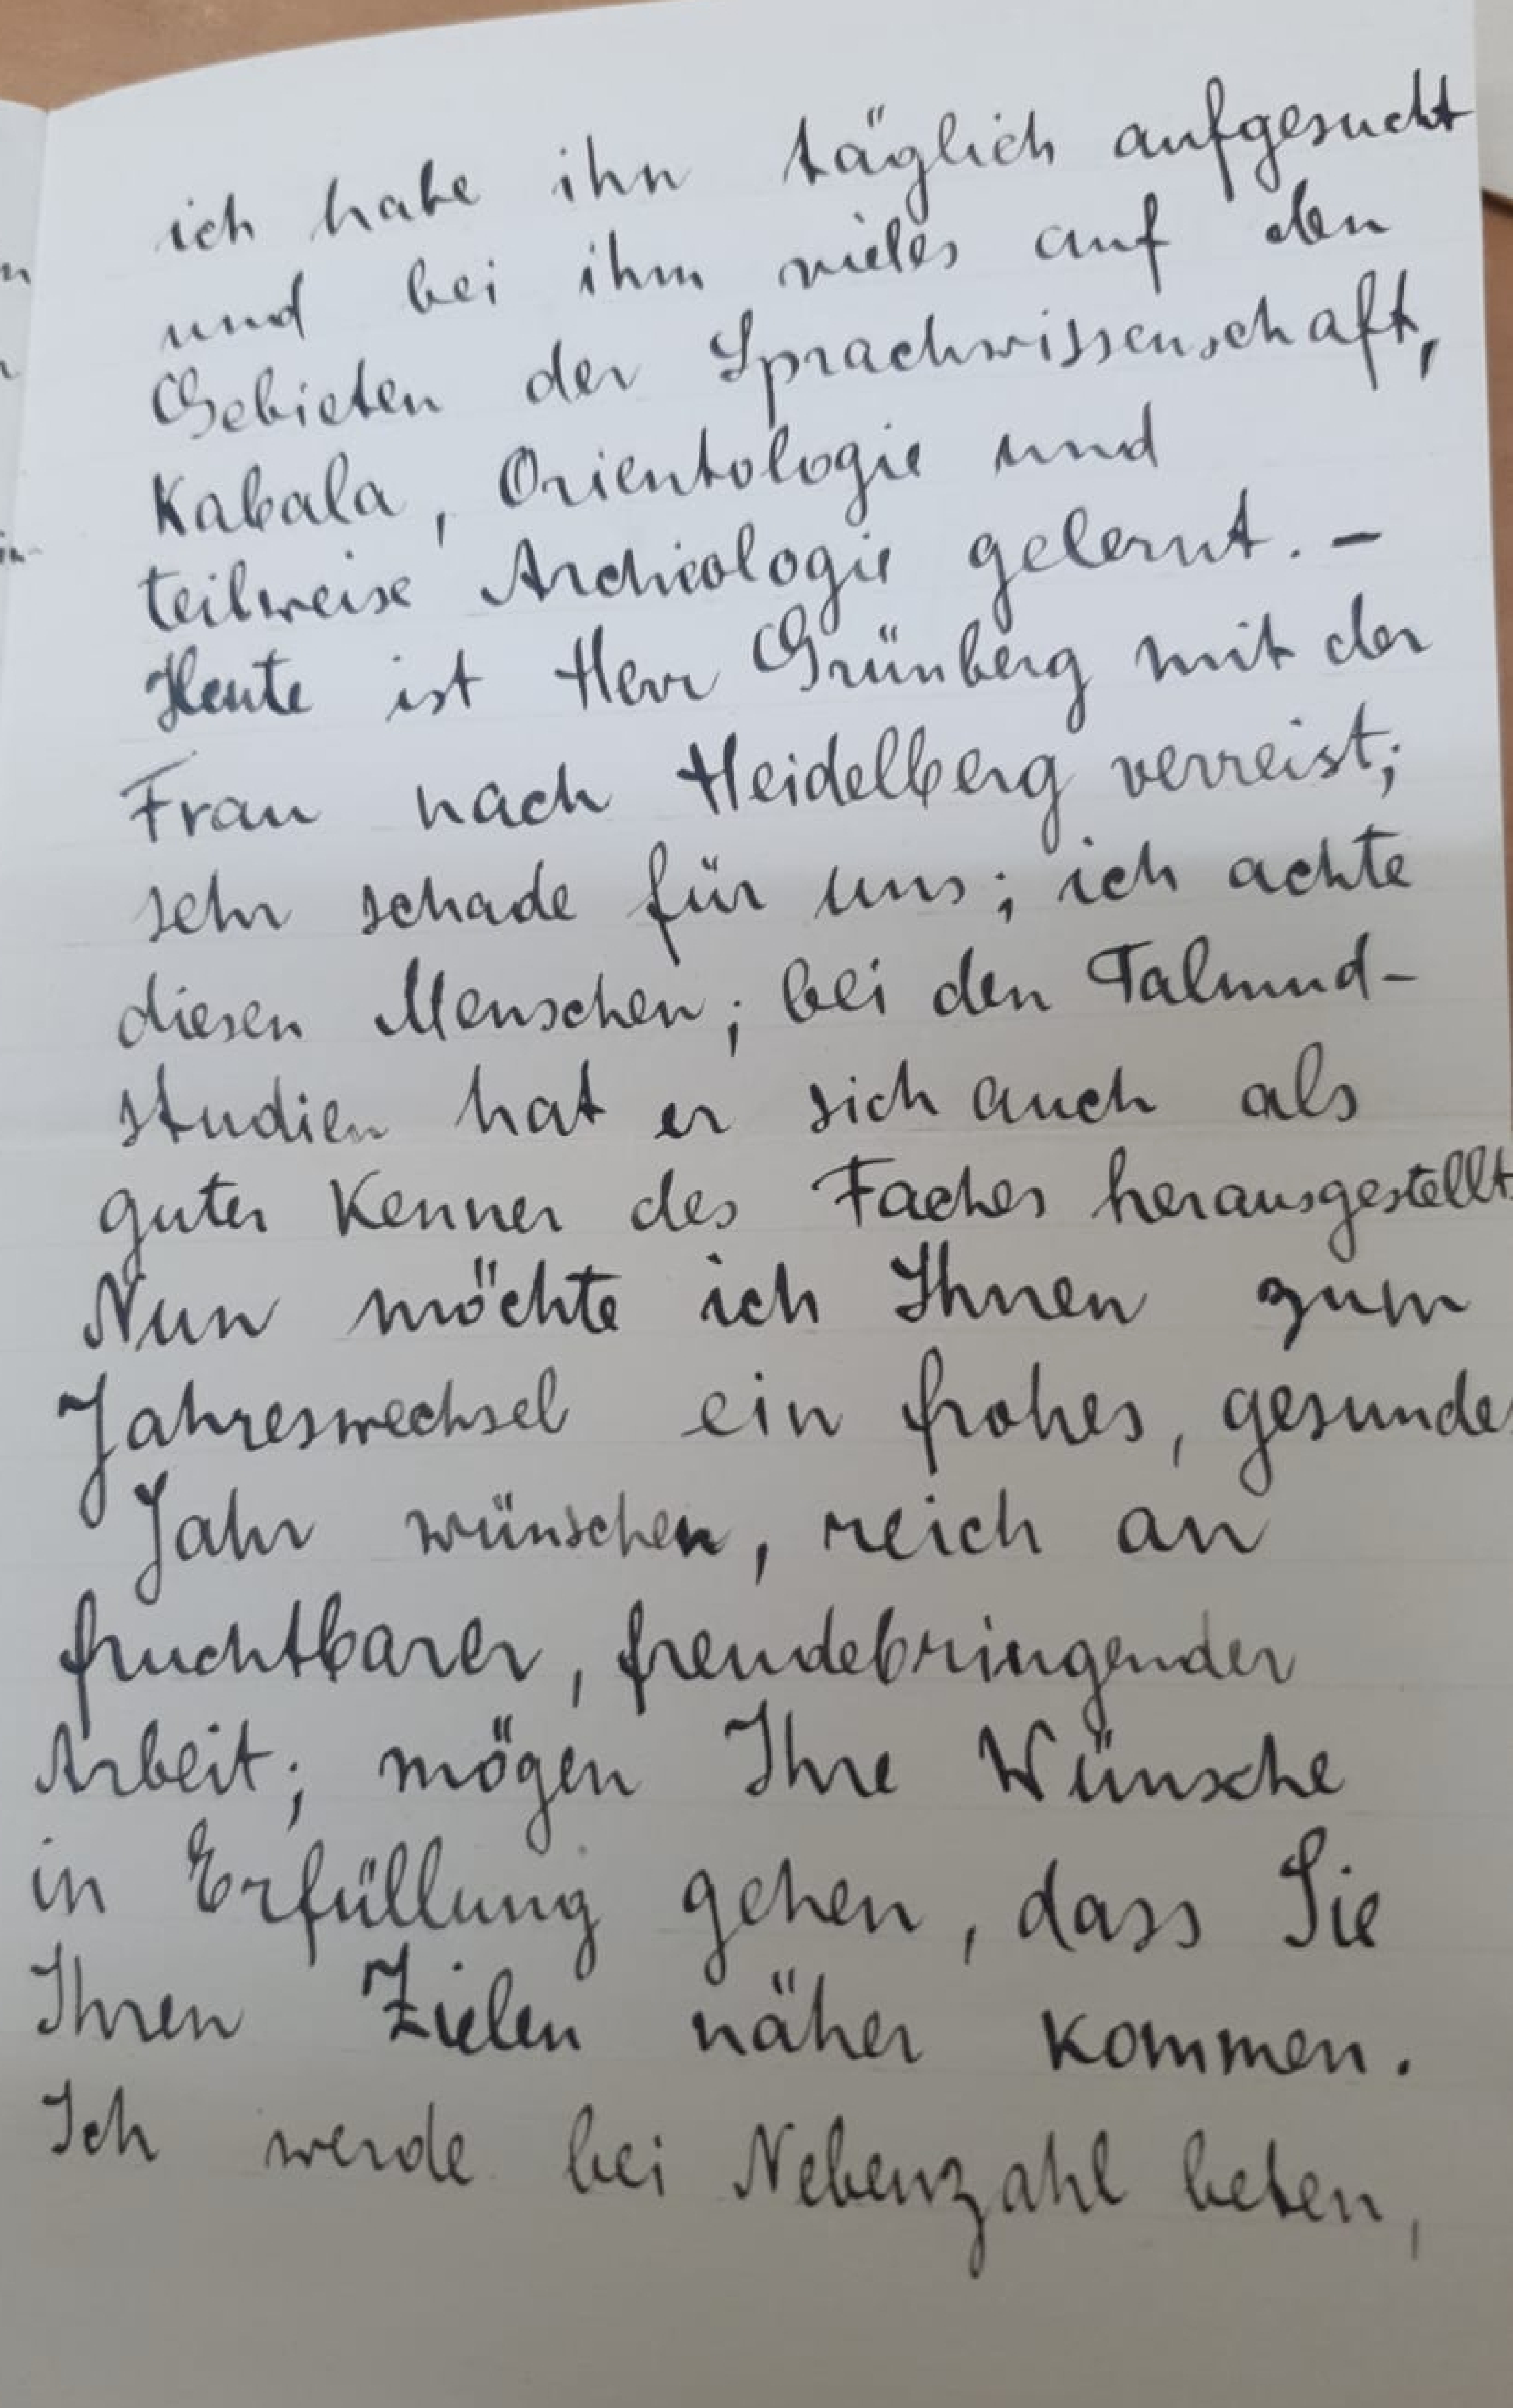 ich habe ihn täglich aufgesucht
und bei ihm vieles auf den
Gebieten der Sprachwissenschaft,
Kabala, Orientologie und
teilweise Archeologie gelernt. –
Heute ist Herr Grünberg mit der
Frau nach Heidelberg verreist;
sehr schade für uns; ich achte
diesen Menschen; bei den Talmud-
studien hat er sich auch als
guter Kenner des Faches herausgestellt
Nun möchte ich Ihnen zum
Jahreswechsel ein frohes, gesunde
Jahr wünschen, reich an
fruchtbarer, freudebringender
Arbeit; mögen Ihre Wünsche
in Erfüllung gehen, dass Sie
Ihren Zielen näher kommen.
Ich werde bei Nebenzahl beten,